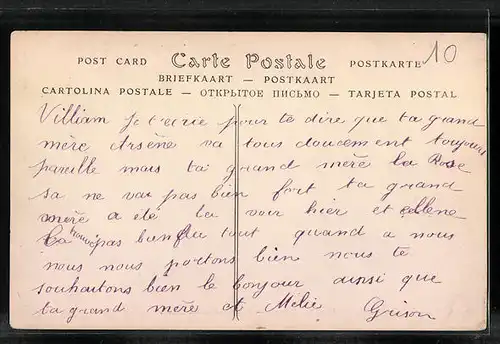 10
POST CARD Carte Postale POSTKARTE
BRIEFKAART — POSTKAART
CARTOLINA POSTALE — ОТКРЫТОЕ ПИСЬМО — TARJETA POSTAL
William je t'ecrie pour te dire que ta grand
mère Arsène va tous doucement toujours
pareille mais ta grand mère la Rose
sa ne vai pas bien fort ta grand
mere a ete la voir hier et elle ne
la trouve pas bien du tout quand a nous
nous nous portons bien nous te
souhaitons bien le bonjour ainsi que
ta grand mere et Melie Grison